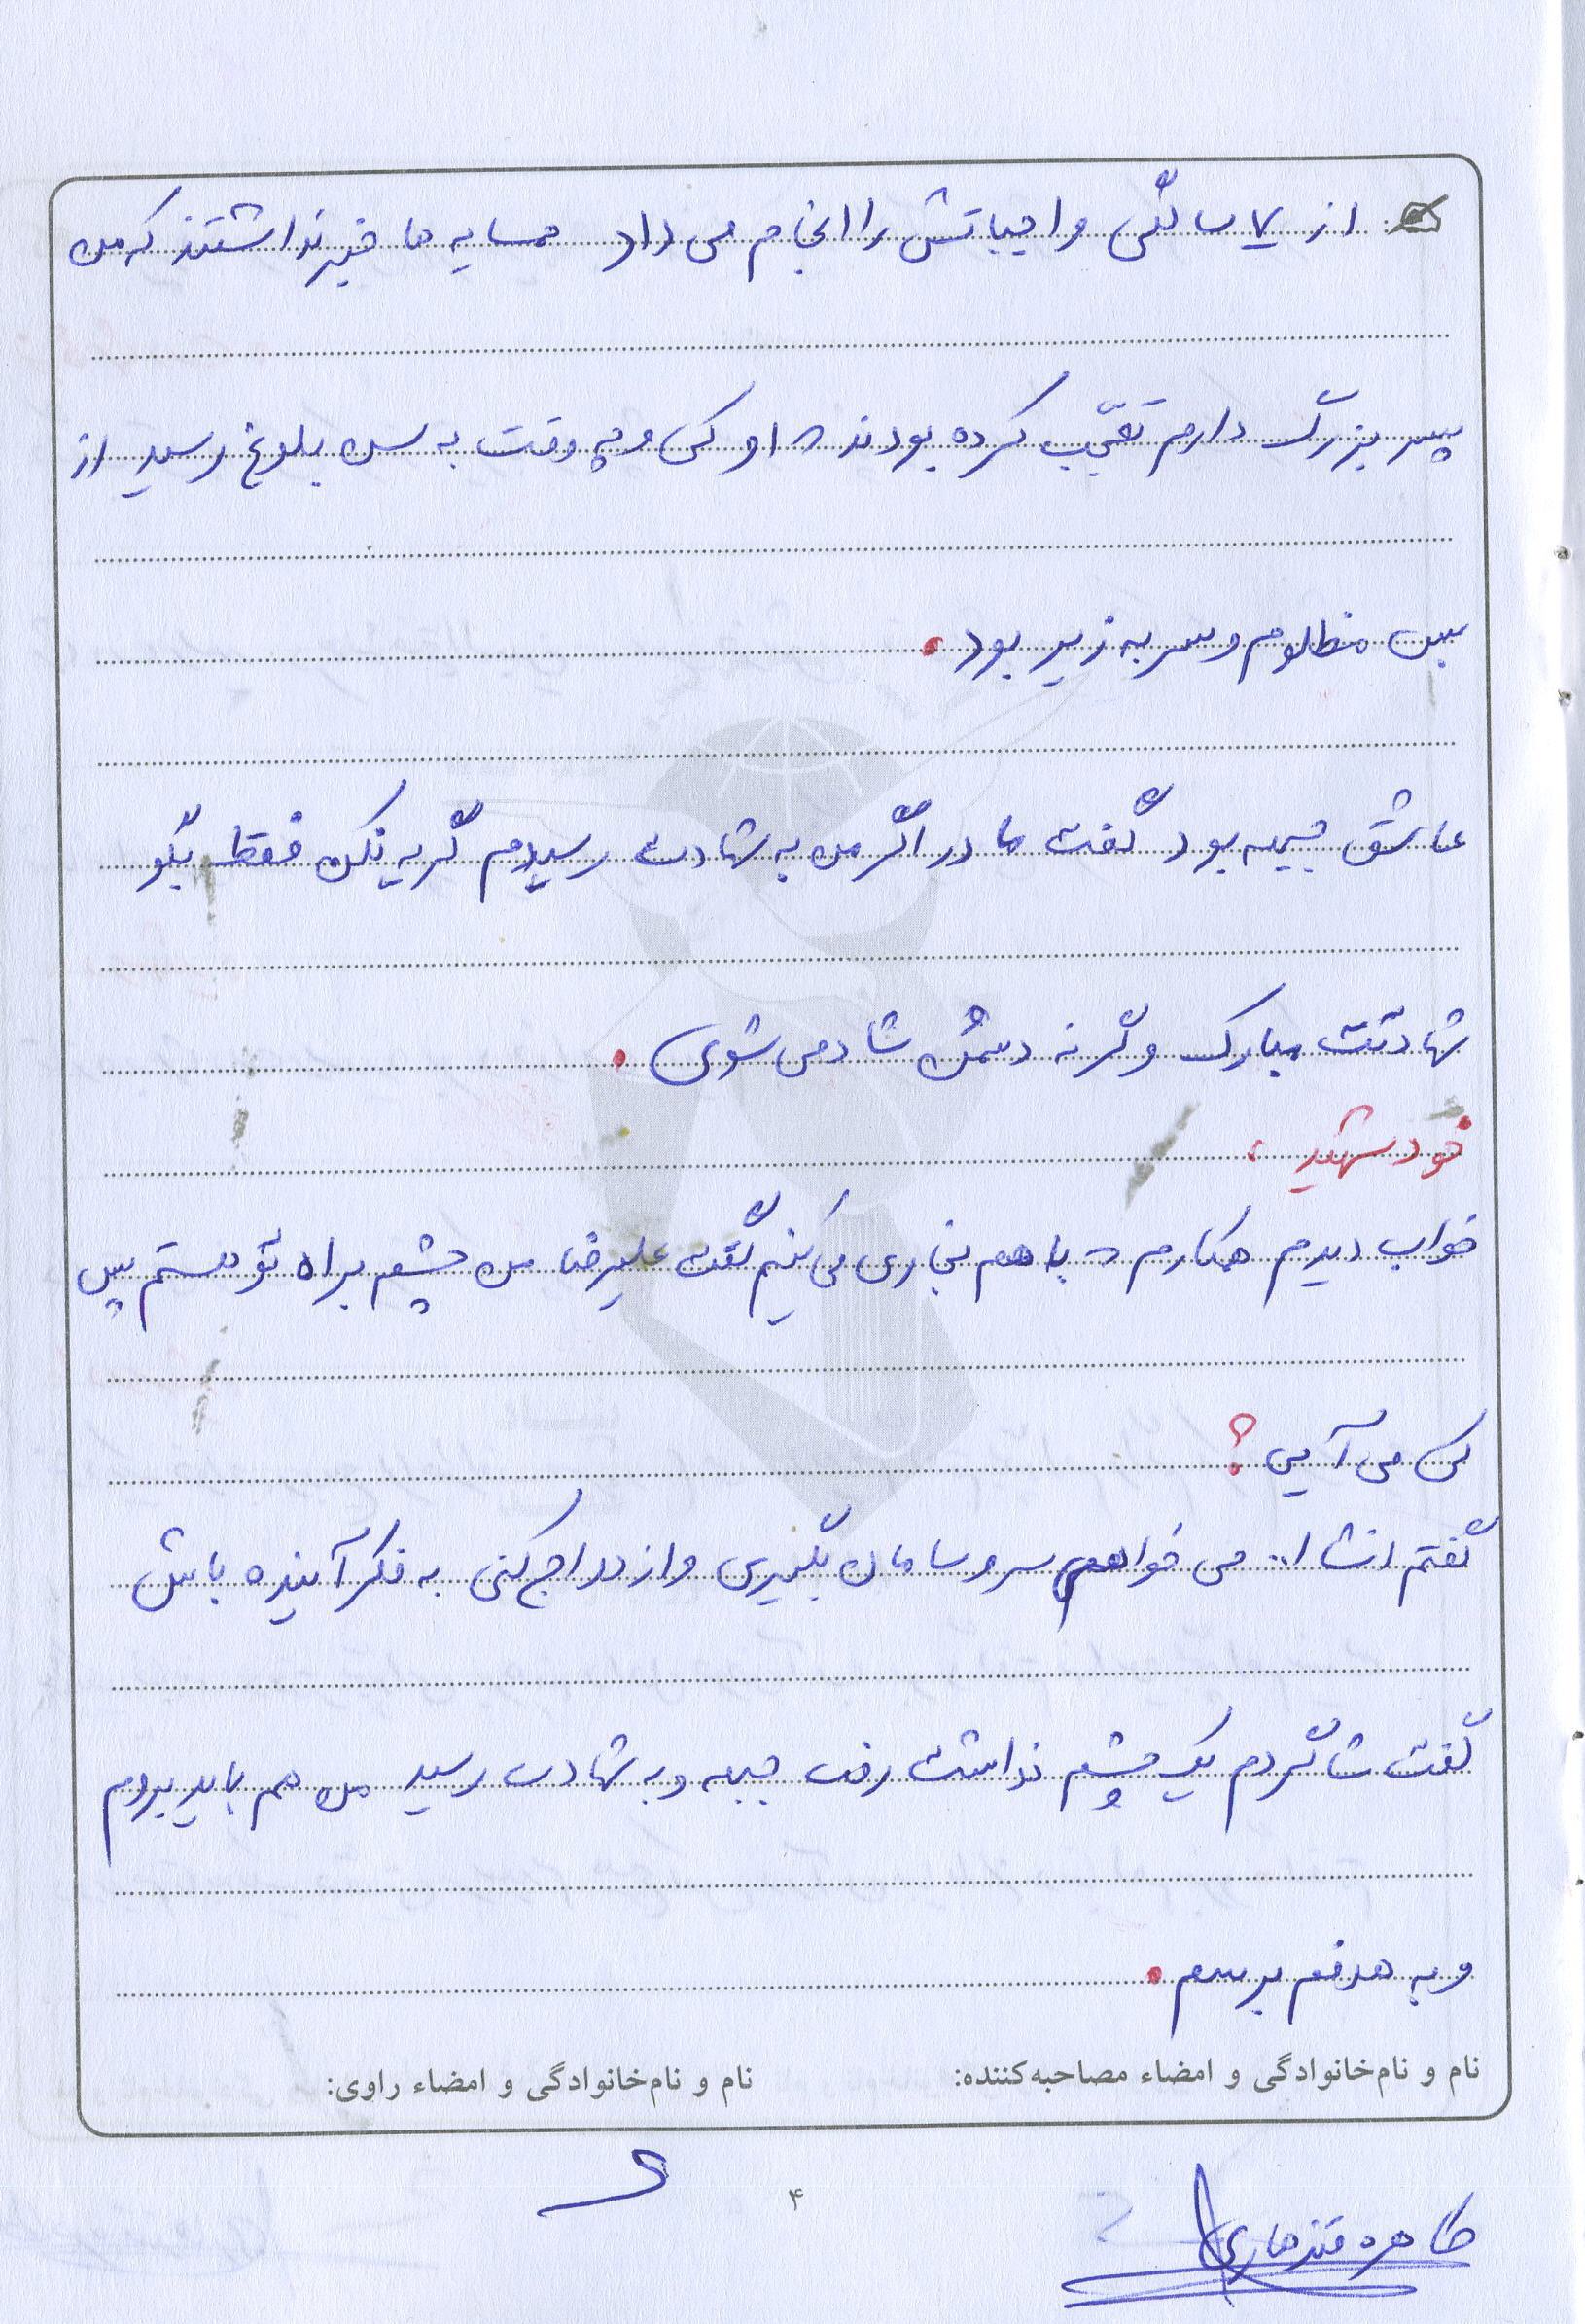 از ۷ سالگی واجباتش را انجام می داد همسایه ها خبر نداشتند که من
پسر بزرگ دارم تعجّب کرده بودند او کی و چه وقت به سن بلوغ رسید از
بس مظلوم و سر به زیر بود.
عاشق جبهه بود گفت مادر اگر من به شهادت رسیدم گریه نکن فقط بگو
شهادتت مبارک وگرنه دشمن شاد می شوی.
خود شهید:
خواب دیدم همکارم با هم نجاری می کنیم گفت علیرضا من چشم براه تو هستم پس
کی می آیی؟
گفتم انشاا.. می خواهم سر و سامان بگیری و ازدواج کنی به فکر آینده باش
گفت شاگردم یک چشم نداشت رفت جبهه و به شهادت رسید من هم باید بروم
و به هدفم برسم.
نام و نام‌خانوادگی و امضاء مصاحبه‌کننده: نام و نام‌خانوادگی و امضاء راوی:
۴
طاهره قندهاری